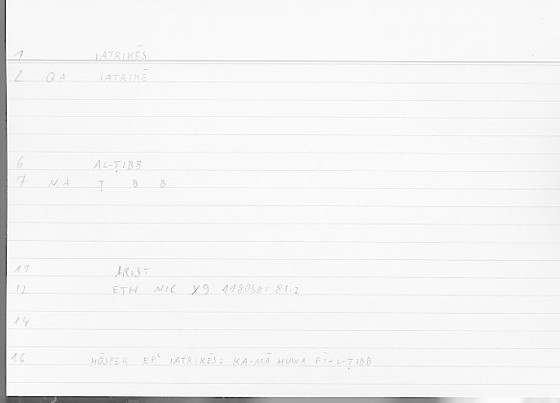 1 IATRIKĒS
2 QA IATRIKĒ
6 AL-ṬIBB
7 NA Ṭ B B
11 ARIST
12 ETH NIC 1180b8: 81.2
14
16 HŌSPER EP' IATRIKĒS: KA-MĀ HUWA FĪ-L-ṬIBB